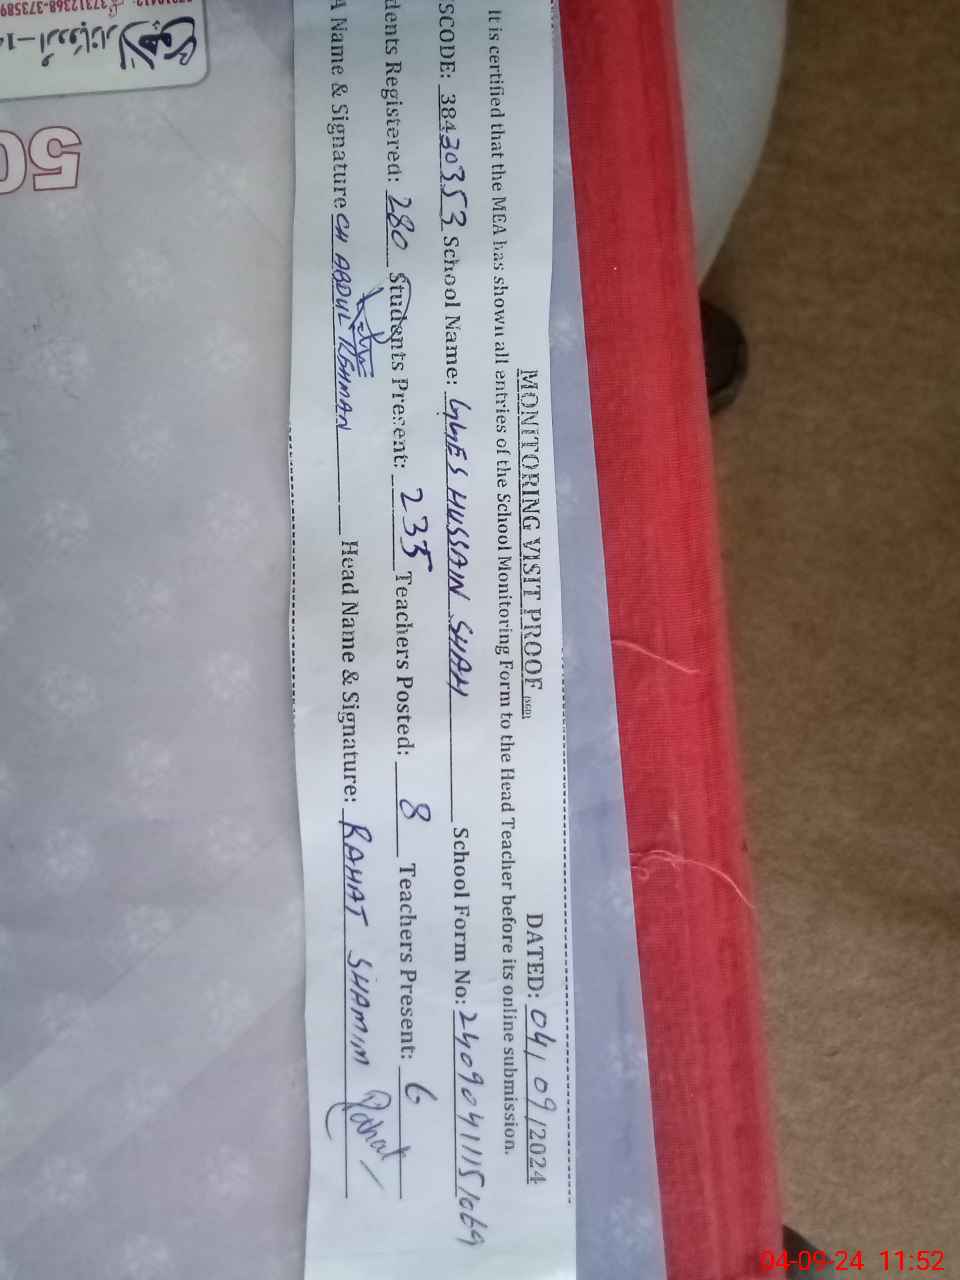 MONITORING VISIT PROOF (SGD) DATED: 04/09/2024
It is certified that the MEA has shown all entries of the School Monitoring Form to the Head Teacher before its online submission.
SCODE: 38430353 School Name: GGES HUSSAIN SHAH School Form No: 2409041115
dents Registered: 280 Students Present: 235 Teachers Posted: 8 Teachers Present: 6
A Name & Signature CH ABDUL REHMAN Head Name & Signature: RAHAT SHAMIM Rahat
50
04-09-24 11:52